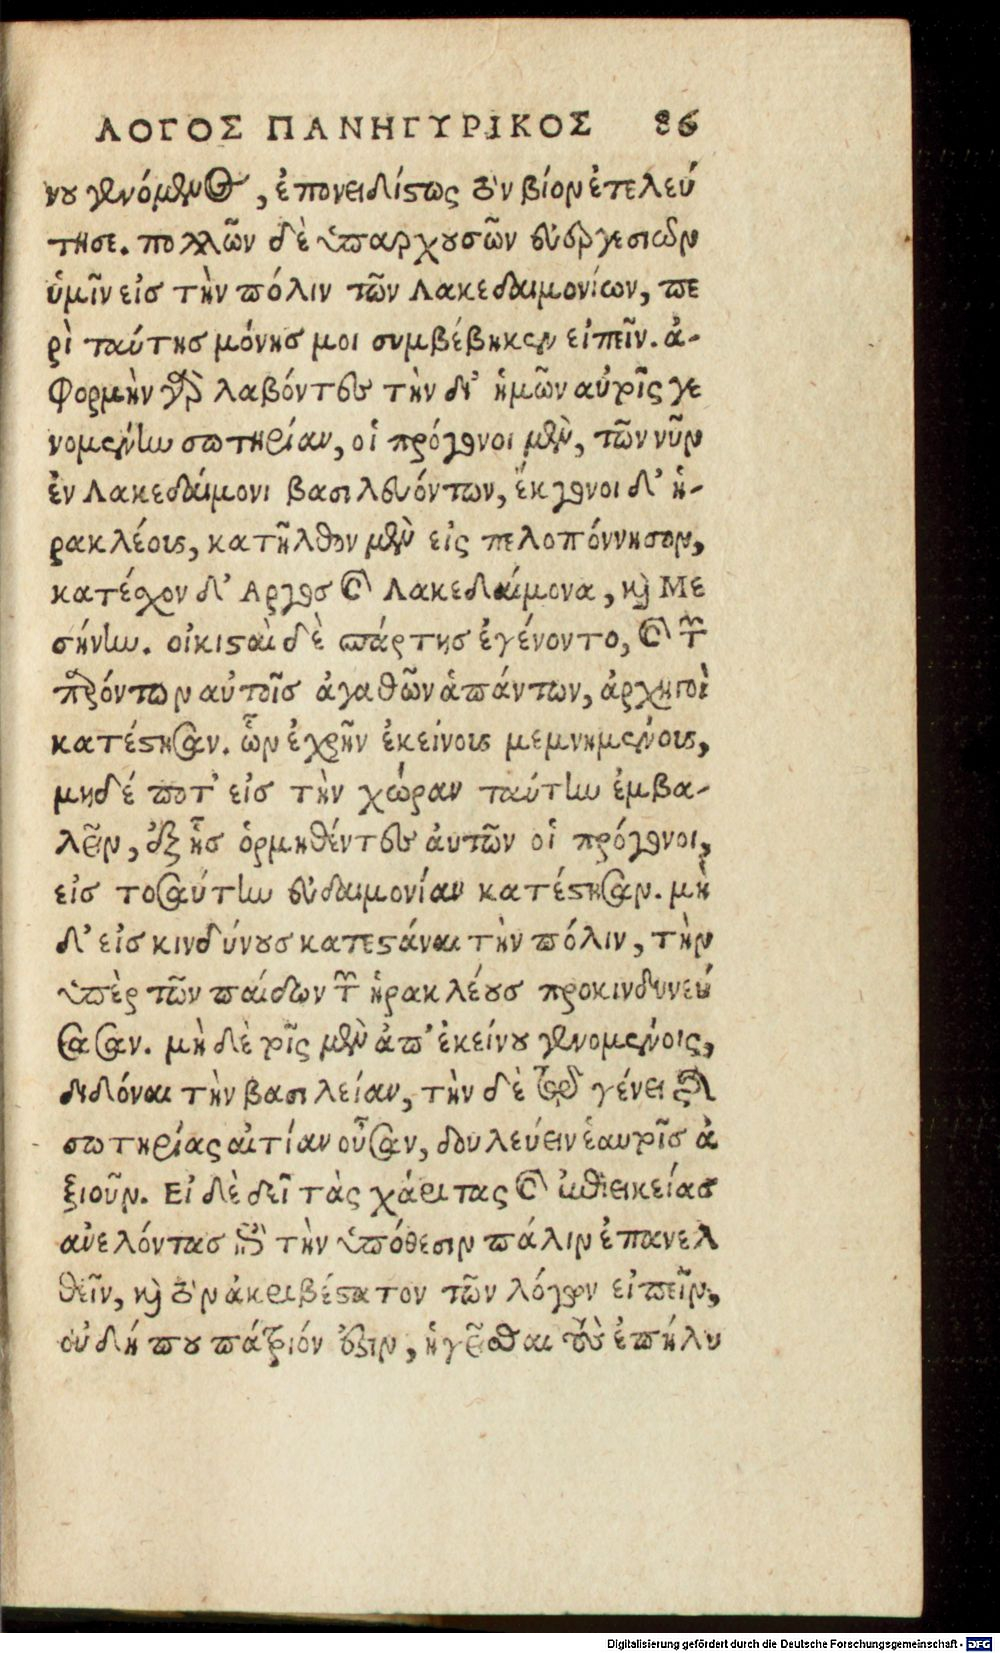 ΛΟΓΟΣ ΠΑΝΗΓΥΡΙΚΟΣ 86
νου γενόμενος, ἐπονειδίστως τὸν βίον ἐτελεύ
τησε. πολλῶν δὲ ὑπαρχουσῶν εὐεργεσιῶν
ὑμῖν εἰς τὴν πόλιν τῶν Λακεδαιμονίων, πε
ρὶ ταύτης μόνης μοι συμβέβηκεν εἰπεῖν. ἀ-
φορμὴν γὰρ λαβόντες τὴν δι' ἡμῶν αὐτοῖς γε
νομένην σωτηρίαν, οἱ πρόγονοι μὲν, τῶν νῦν
ἐν Λακεδαίμονι βασιλευόντων, ἔκγονοι δ' ἡ-
ρακλέους, κατῆλθον μὲν εἰς πελοπόννησον,
κατέχον δ' Αργος καὶ Λακεδαίμονα, καὶ Με
σήνην. οἰκισταὶ δὲ σπάρτης ἐγένοντο, καὶ τῶν
παρόντων αὐτοῖς ἀγαθῶν ἁπάντων, ἀρχηγοὶ
κατέστησαν. ὧν ἐχρῆν ἐκείνους μεμνημένους,
μηδέ ποτ' εἰς τὴν χώραν ταύτην ἐμβα-
λεῖν, ἐξ ἧς ὁρμηθέντες αὐτῶν οἱ πρόγονοι,
εἰς τοσαύτην εὐδαιμονίαν κατέστησαν. μὴ
δ' εἰς κινδύνους κατεστάναι τὴν πόλιν, τὴν
ὑπὲρ τῶν παίδων τῶν ἡρακλέους προκινδυνεύ
σασαν. μὴ δὲ τοῖς μὲν ἀπ' ἐκείνου γενομένοις,
διδόναι τὴν βασιλείαν, τὴν δὲ τῷ γένει τῆς
σωτηρίας αἰτίαν οὖσαν, δουλεύειν ἑαυτοῖς ἀ
ξιοῦν. Εἰ δὲ δεῖ τὰς χάριτας καὶ ἐπιεικείας
ἀνελόντας ἐπὶ τὴν ὑπόθεσιν πάλιν ἐπανελ
θεῖν, καὶ τὸν ἀκριβέστατον τῶν λόγων εἰπεῖν,
οὐ δή που πάτριόν ἐστιν, ἡγεῖσθαι τοὺς ἐπήλυ
Digitalisierung gefördert durch die Deutsche Forschungsgemeinschaft - DFG